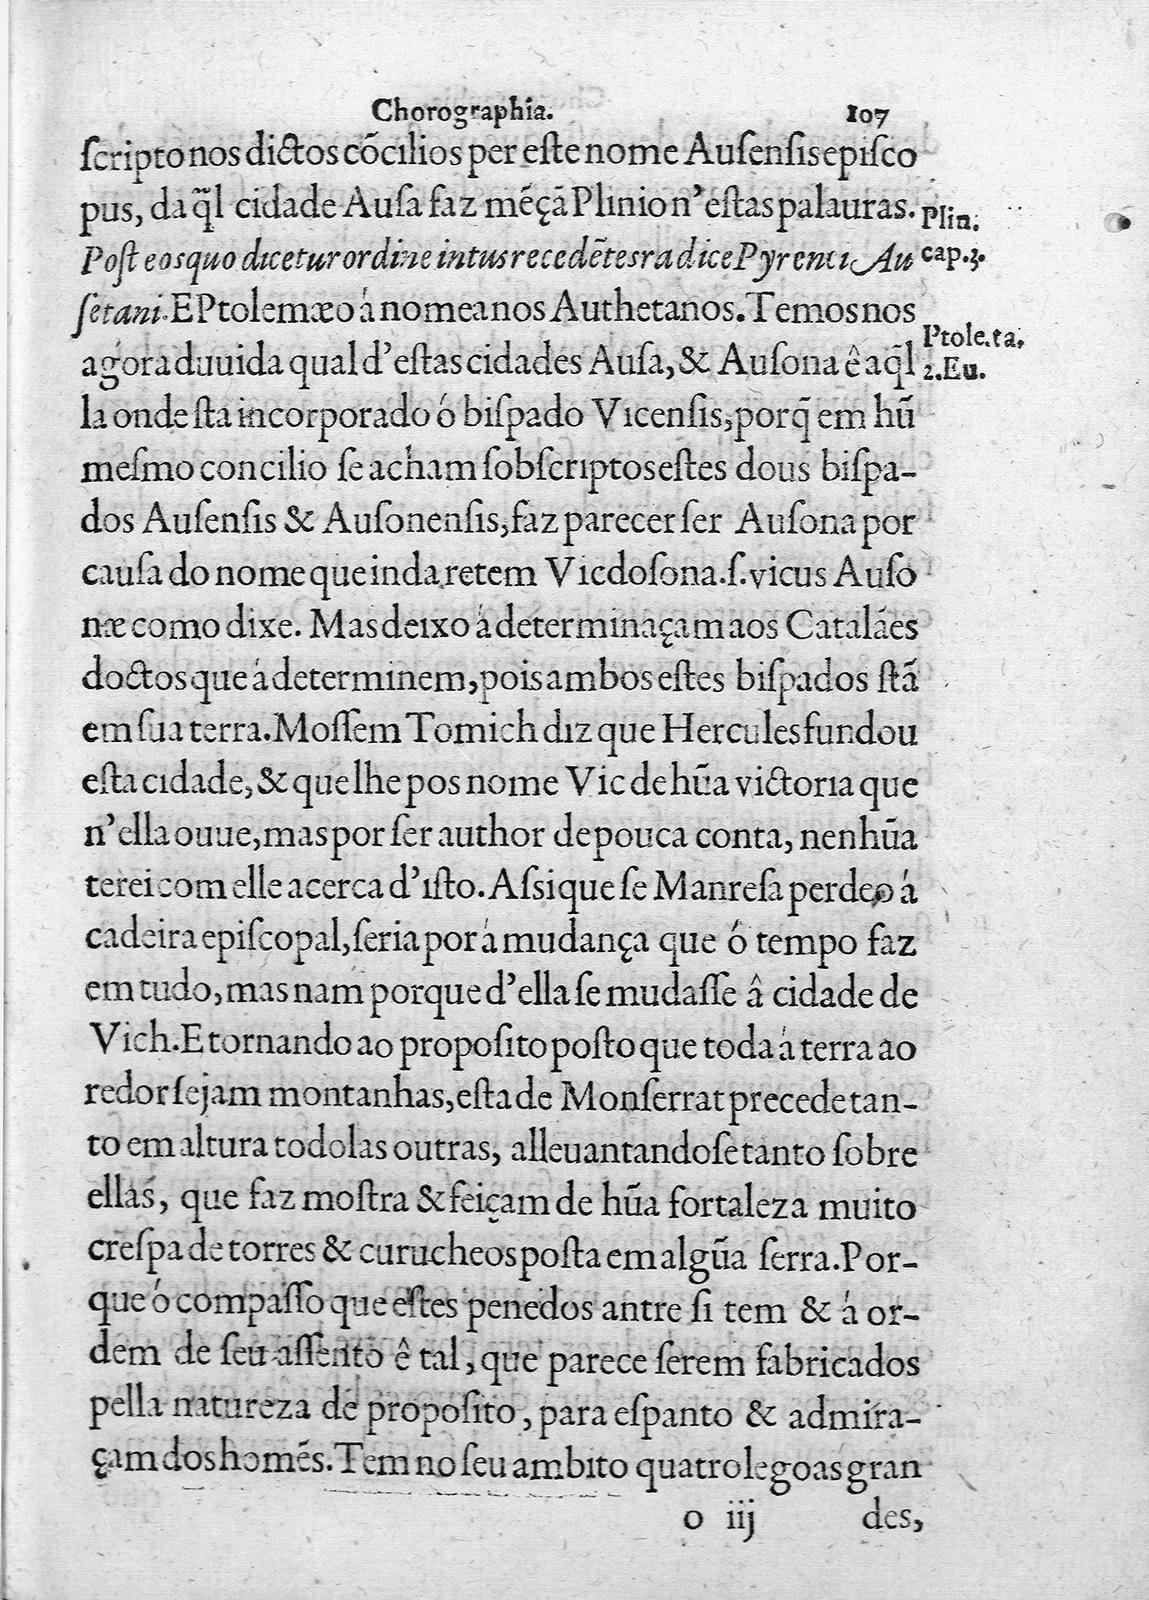 Chorographia. 107
ſcripto nos dictos cõcilios per eſte nome Auſenſis epiſco
pus, da q̃l cidade Auſa faz mẽçã Plinio n'eſtas palauras.
Plin.
Poſt eos quo dicetur ordine intus recedẽtes radice Pyrenei Au
cap.3.
ſetani. E Ptolemæo á nomea nos Authetanos. Temos nos
Ptole.ta.
agora duuida qual d'eſtas cidades Auſa, & Auſona ê aq̃l
2.Eu.
la onde ſta incorporado ó biſpado Vicenſis, porq̃ em hũ
meſmo concilio ſe acham ſobſcriptos eſtes dous biſpa-
dos Auſenſis & Auſonenſis, faz parecer ſer Auſona por
cauſa do nome que inda retem Vicdoſona.ſ.vicus Auſo
næ como dixe. Mas deixo á determinaçam aos Catalães
doctos que á determinem, pois ambos eſtes biſpados ſtã
em ſua terra. Moſſem Tomich diz que Hercules fundou
eſta cidade, & que lhe pos nome Vic de hũa victoria que
n'ella ouue, mas por ſer author de pouca conta, nenhũa
terei com elle acerca d'iſto. Aſsi que ſe Manreſa perdeo á
cadeira epiſcopal, ſeria por á mudança que ó tempo faz
em tudo, mas nam porque d'ella ſe mudaſſe â cidade de
Vich. E tornando ao propoſito poſto que toda á terra ao
redor ſejam montanhas, eſta de Monſerrat precede tan-
to em altura todolas outras, alleuantandoſe tanto ſobre
ellas, que faz moſtra & feiçam de hũa fortaleza muito
creſpa de torres & curucheos poſta em algũa ſerra. Por-
que ó compaſſo que eſtes penedos antre ſi tem & á or-
dem de ſeu aſſento ê tal, que parece ſerem fabricados
pella natureza de propoſito, para eſpanto & admira-
çam dos homẽs. Tem no ſeu ambito quatro legoas gran
o iij des,